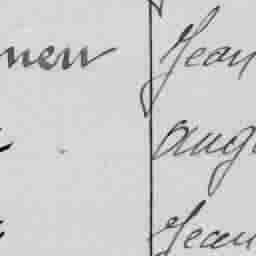 nen Jean
aug
Jean